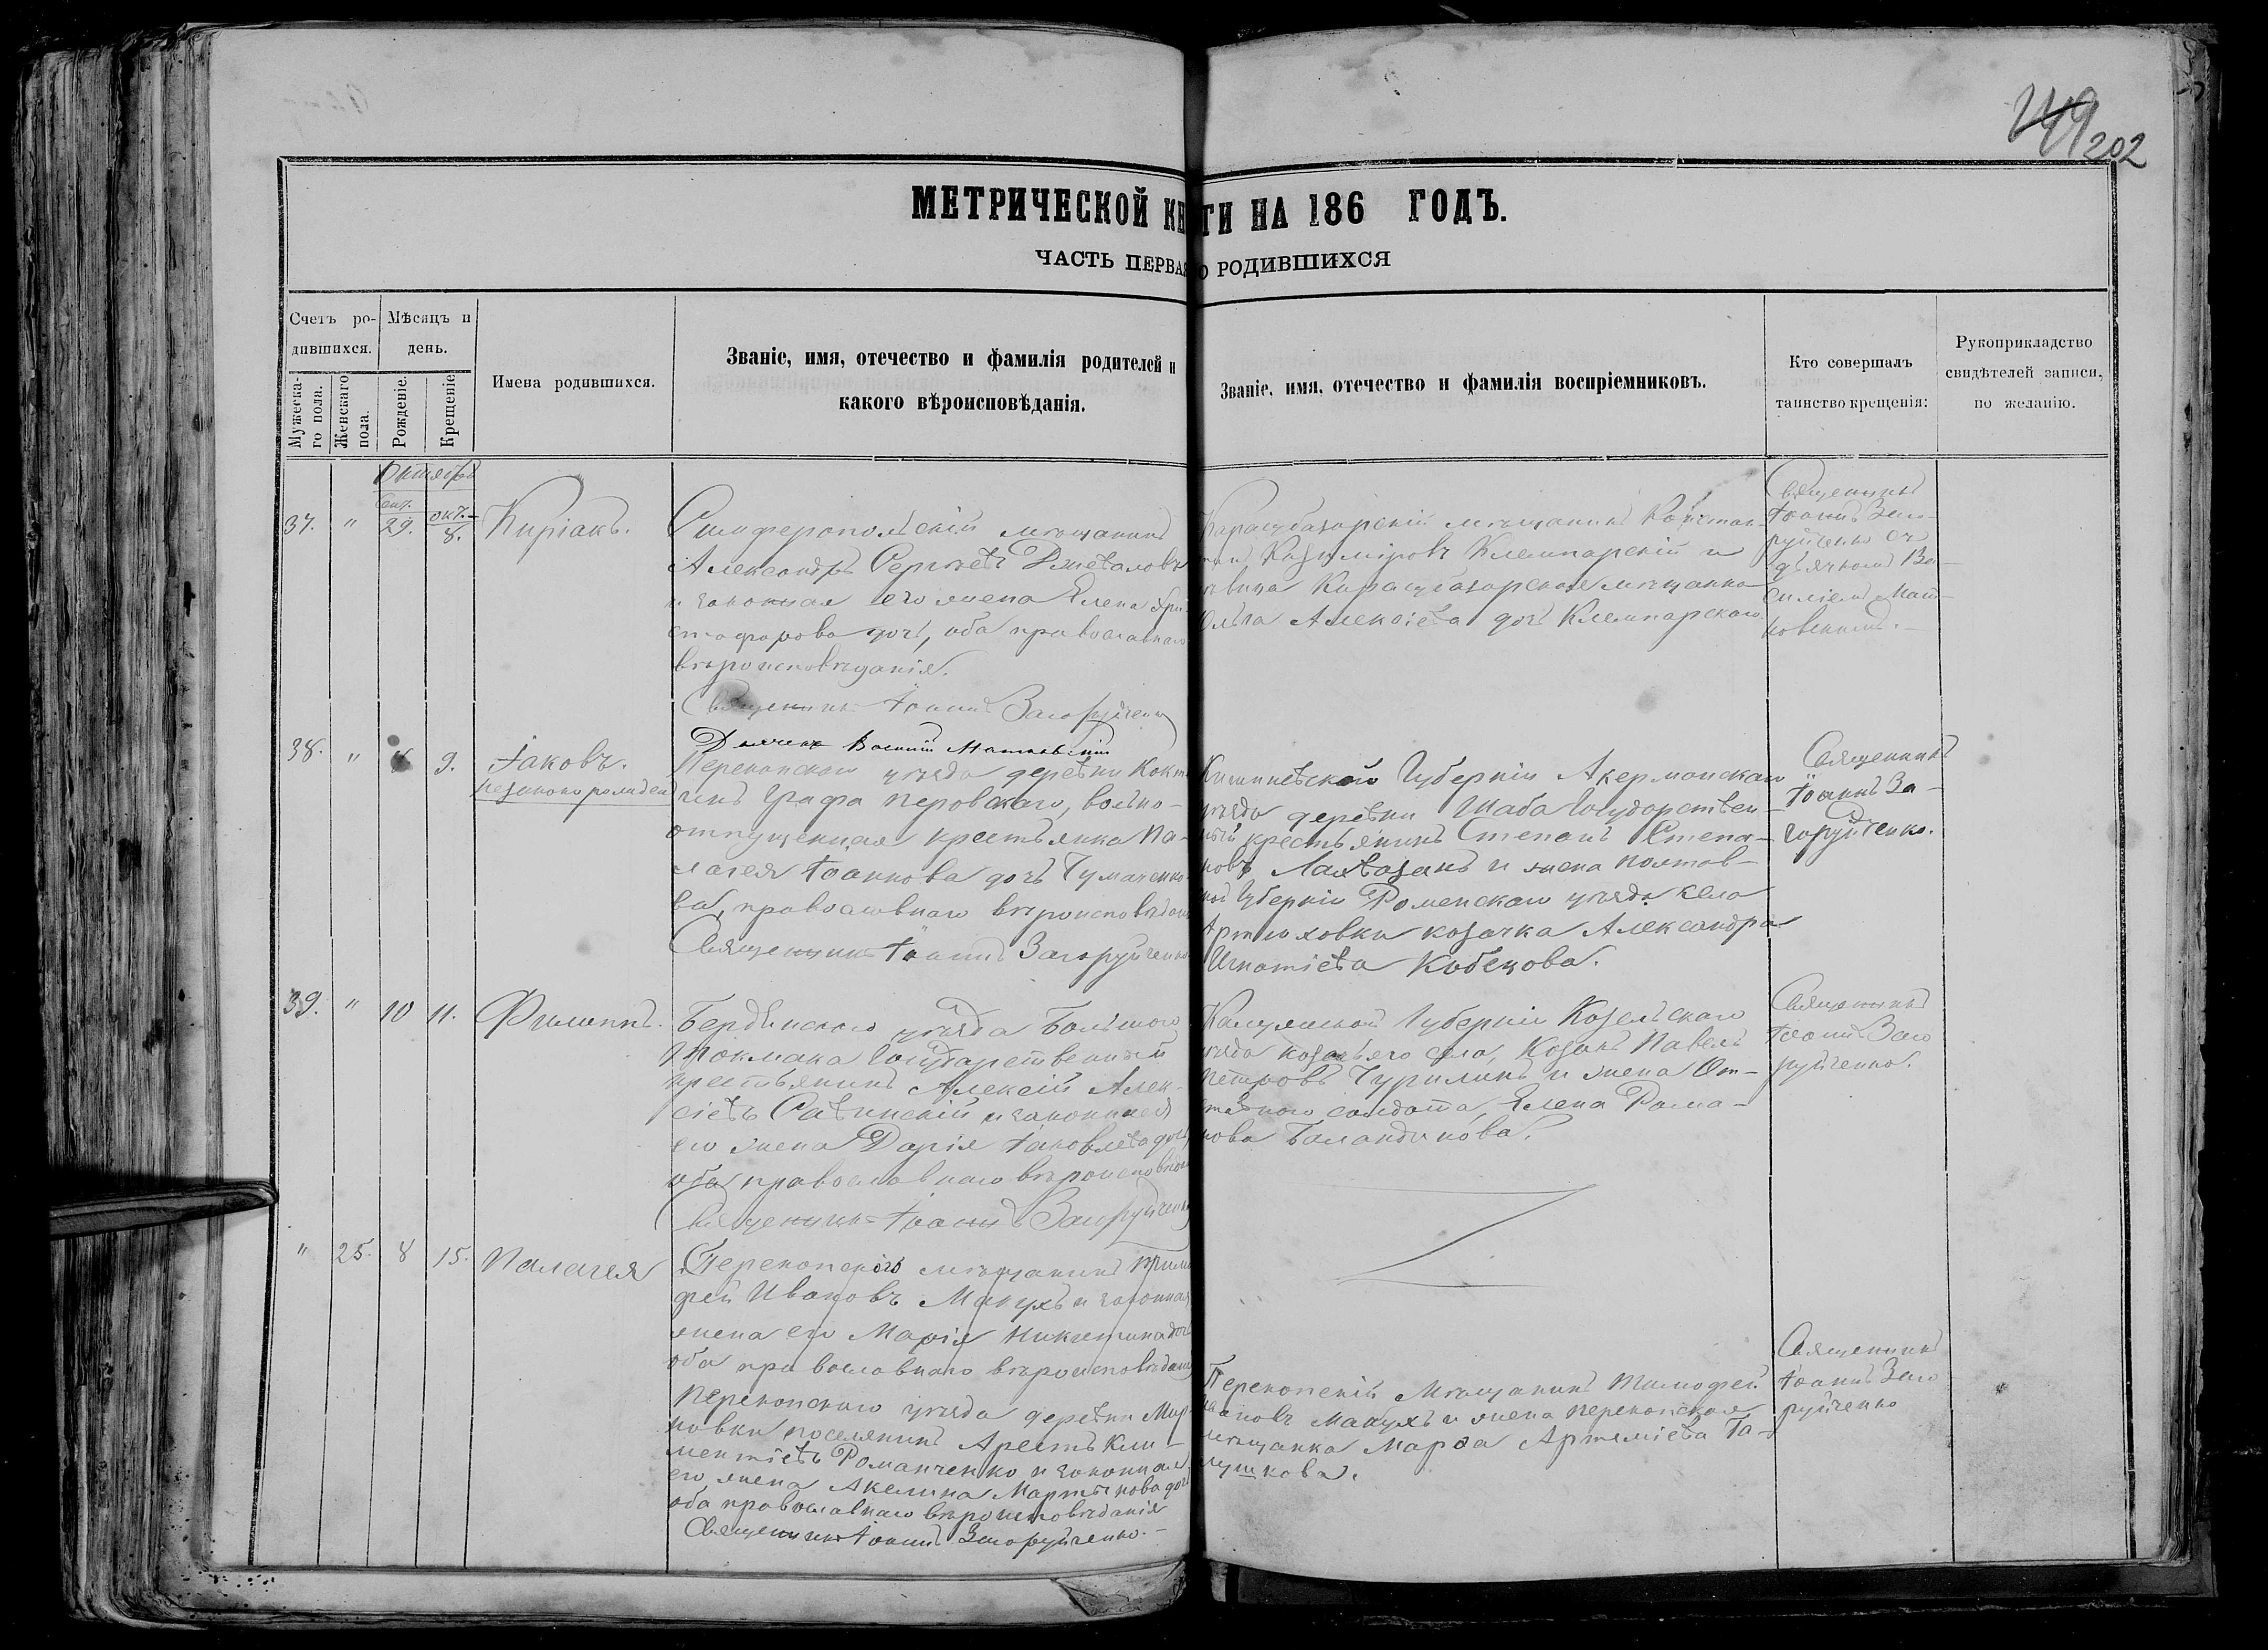 149
202
МЕТРИЧЕСКОЙ КНИГИ НА 186 ГОДЪ.
ЧАСТЬ ПЕРВАЯ О РОДИВШИХСЯ
Счетъ ро-
дившихся.
Мужеска-
го пола.
Женскаго
пола.
Мѣсяцъ и
день.
Рожденіе.
Крещеніе
Имена родившихся.
Званіе, имя, отечество и фамилія родителей и
какого вѣроисповѣданія.
Званіе, имя, отечество и фамилія воспріемниковъ.
Кто совершалъ
таинство крещенія:
Рукоприкладство
свидѣтелей записи,
по желанію.
Октябрь
Сент. окт.
37. " 29. 8. Киріакъ.
Симферопольскій мѣщанинъ
Александръ Сергѣевъ
и законная его жена Елена Хри-
стофорова дочь, оба православнаго
вѣроисповѣданія.
Священникъ Іоаннъ Загоруйченко
Дьячекъ Василій
Карасубазарскій мѣщанинъ Констан-
Казиміровъ Клемпарскій и
дѣвица Карасубазарская мѣщанка
Ольга Алексіева дочь Клемпарскаго
Священникъ
Іоаннъ Заго-
руйченко съ
дьячкомъ Ва-
силіемъ

38. " 9. Іаковъ.
незаконнорожден
Перекопскаго уѣзда деревни
Графа Перовскаго, вольно-
отпущенная крестьянка Па-
лагея Іоаннова дочь Чумаченко-
ва, православнаго вѣроисповѣданія
Священникъ Іоаннъ Загоруйченко
Кишиневской Губерніи Акерманскаго
уѣзда деревни Шаба Государствен-
ный крестьянинъ Степанъ Степа-
новъ и жена Полтав-
ской Губерніи Роменскаго уѣзда села
Артюховки козачка Александра
Игнатіева Кобецова.
Священникъ
Іоаннъ За-
горуйченко.

39. " 10 11. Филиппъ.
Бердянскаго уѣзда Большого
Токмака Государственный
крестьянинъ Алексій Алек-
сіевъ и законная
его жена Дарія Іаковлева дочь
оба православнаго вѣроисповѣданія
Священникъ Іоаннъ Загоруйченко
Калужской Губерніи Козельскаго
уѣзда села, Козакъ Павелъ
Петровъ Чурилинъ и жена От-
ставного солдата, Елена Рома-
нова Баландинова.
Священникъ
Іоаннъ Заго
руйченко.

" 25. 8 15. Палагея
Перекопскаго мѣщанинъ Тимо
фей Ивановъ Макухъ и законная
жена его Марія Никитина дочь
оба православнаго вѣроисповѣданія
Перекопскаго уѣзда деревни
поселянинъ Кли-
ментіевъ Романченко и законная
его жена Акелина Мартынова дочь
оба православнаго вѣроисповѣданія
Священникъ Іоаннъ Загоруйченко.
Перекопскій Мѣщанинъ Тимофей
Ивановъ Макухъ и жена перекопская
мѣщанка Марѳа Артеміева Га-
лушкова.
Священникъ
Іоаннъ Заго
руйченко